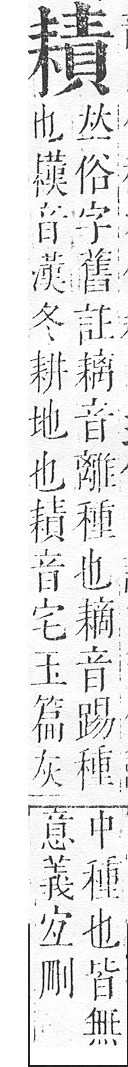 耫
𠀤俗字舊註音離種也音踢種
也音漢冬耕地也耫音宅玉篇灰
中種也皆無
意義宐刪